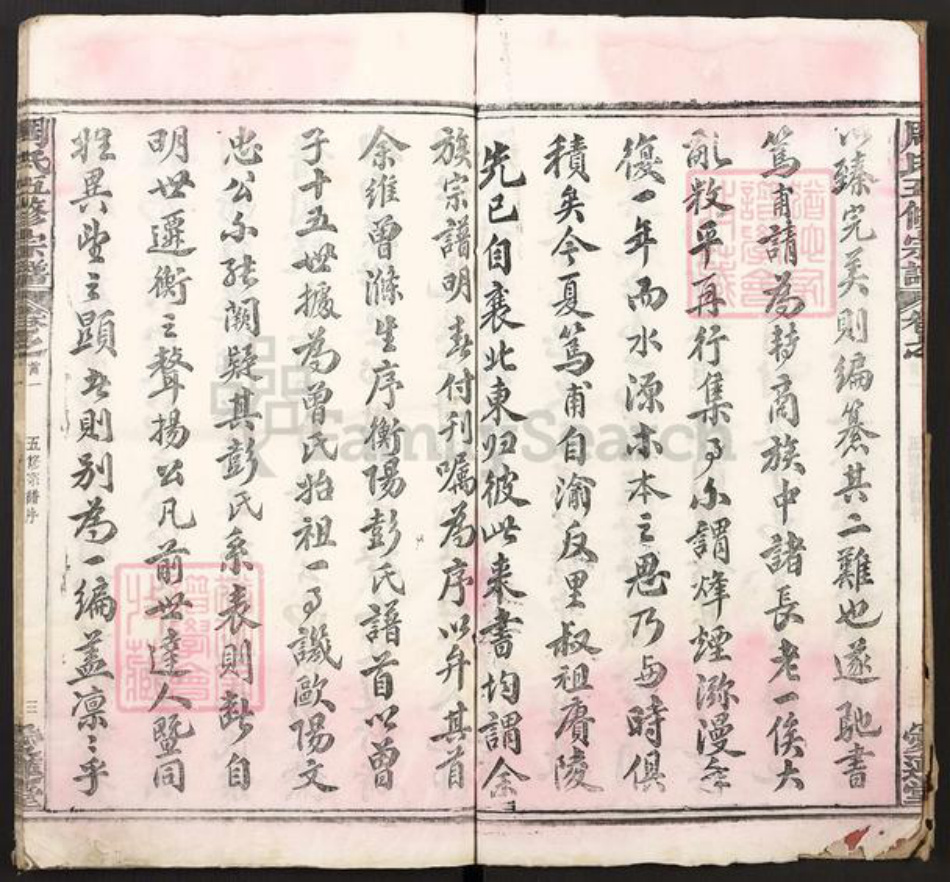 以臻完美則編纂其二難也遂馳書
篤甫請為轉商族中諸長老一俟大
亂敉平再行集事尔謂烽煙瀰漫
復一年而水源木本之思乃与時俱
積矣今夏篤甫自渝反里叔祖賡陵
先已自襄北東归彼此来書均謂余
族宗譜明春付刊嘱為序以弁其首
余維曾滌生序衡陽彭氏譜首以曾
子十五世據為曾氏始祖一事譏歐陽文
忠公不能闕疑其彭氏系表則斷自
明世遷衡之聲揚公凡前世達人暨同
姓異望之顯者則别為一編盖凛〻乎
周氏五修宗譜
卷之首一
五修宗譜序
三
愛蓮堂
FamilySearch